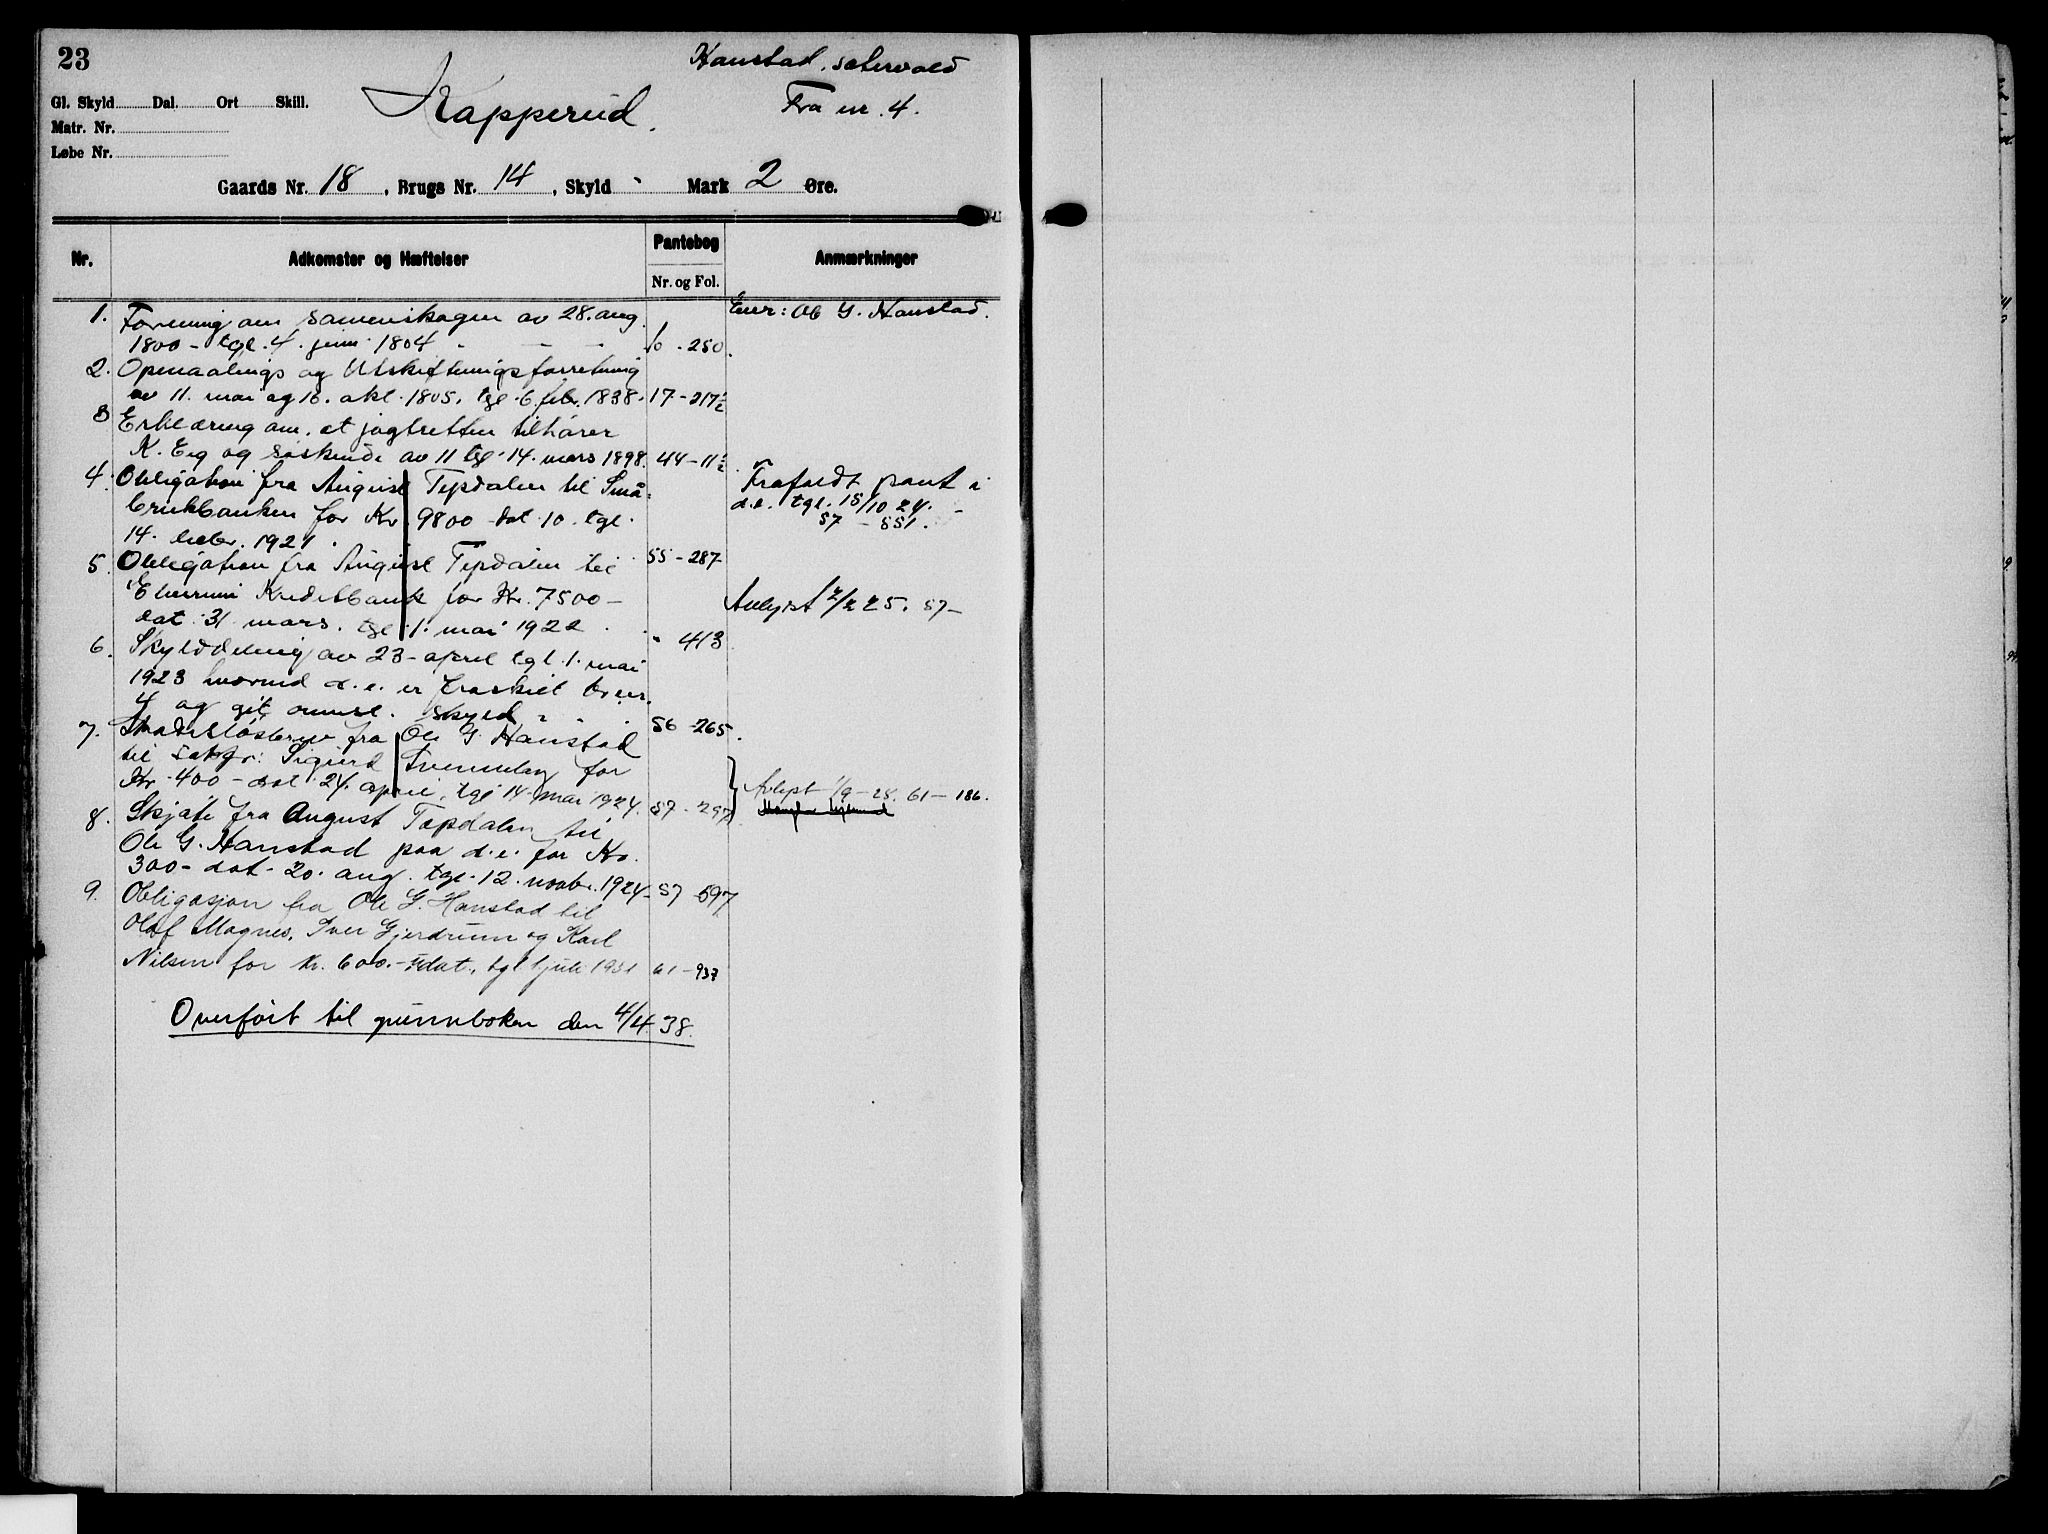 23
Hanstad, sætervold
Fra nr. 4.
Kapperud.
Gl. Skyld Dal. Ort Skill.
Matr. Nr.
Løbe Nr.
Gaards Nr. 18, Brugs Nr. 14, Skyld - Mark 2 Øre.
Nr. Adkomster og Hæftelser Pantebog Nr. og Fol. Anmærkninger
1. Forening om sameieskogen av 28. aug. Eier: Ole G. Hanstad.
1800 - tgl. 4. juni 1804 - - - 6 - 250.
2. Opmaalings og Utskiftningsforretning
av 11. mai og 16. okt. 1805, tgl. 6. febr. 1838. 17 - 217½
3 Erklæring om, at jagtretten tilhører
K. Eeg og søskende av 11 tgl. 14. mars 1898. 44 - 11½
4. Obligation fra August Tepdalen til Små- Frafaldt pant i
brukbanken for Kr. 9800 dat. 10. tgl. d.e. tgl. 15/10 24.
14. 1921. 57 - 551.
5. Obligation fra August Tepdalen til 55 - 287
Elverum Kreditbank for Kr. 7500 - Avlyst 2/2 25. 57 -
dat. 31 mars. tgl. 1. mai 1922 . . " 413
6. Skylddeling av 23 - april tgl. 1. mai
1923 hvorved d.e. er fraskilt br.nr.
4 og git anmst. skyld " . . 56 - 265.
7. Skadesløsbrev fra Ole G. Hanstad
til sakfr: Sigurd Svenneby for
Kr. 400 - dat. 24. april, tgl. 14. mai 1924. 57 - 297 Avlyst 1/9 - 28. 61 - 186.
8. Skjøte fra August Tøpdalen til
Ole G. Hanstad paa d.e. for Kr.
300 - dat. 20. aug. tgl. 12. novbr. 1924 - 57 - 597
9. Obligasjon fra Ole G. Hanstad til
Olaf Magnes, Iver Gjerdrum og Karl
Nilsen for kr. 600. - udat., tgl. 1 juli 1931 61 - 937
Overført til grunnboken den 4/4 38.